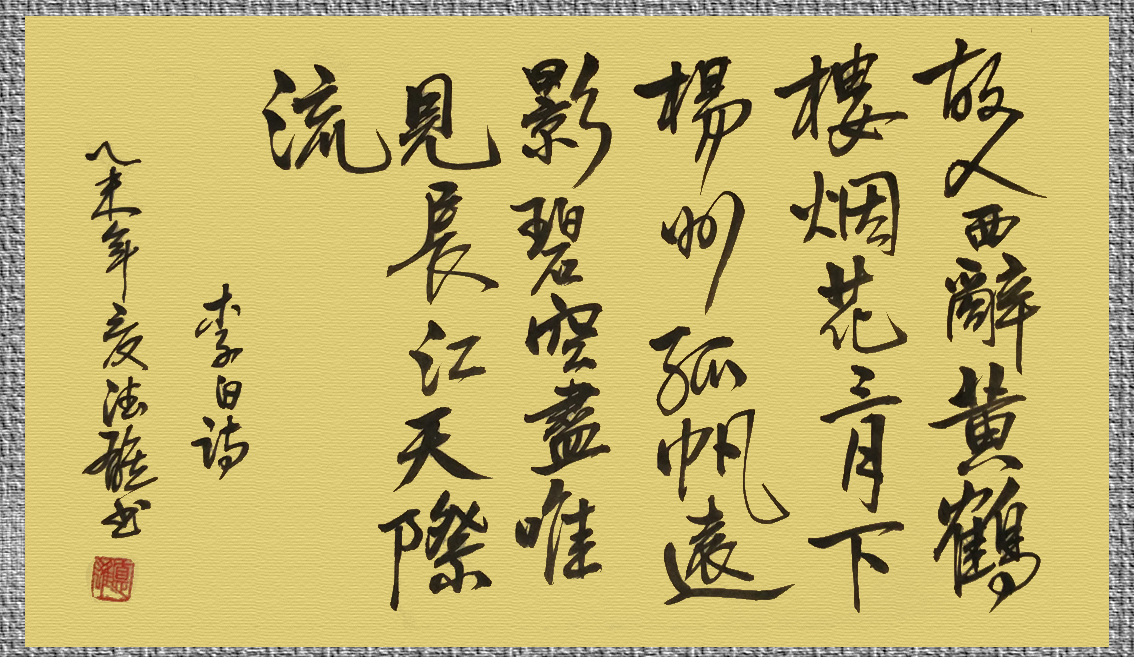 故人西辭黄鶴
樓烟花三月下
楊州孤帆遠
影碧空盡唯
見長江天際
流
李白詩
乙未年夏德书